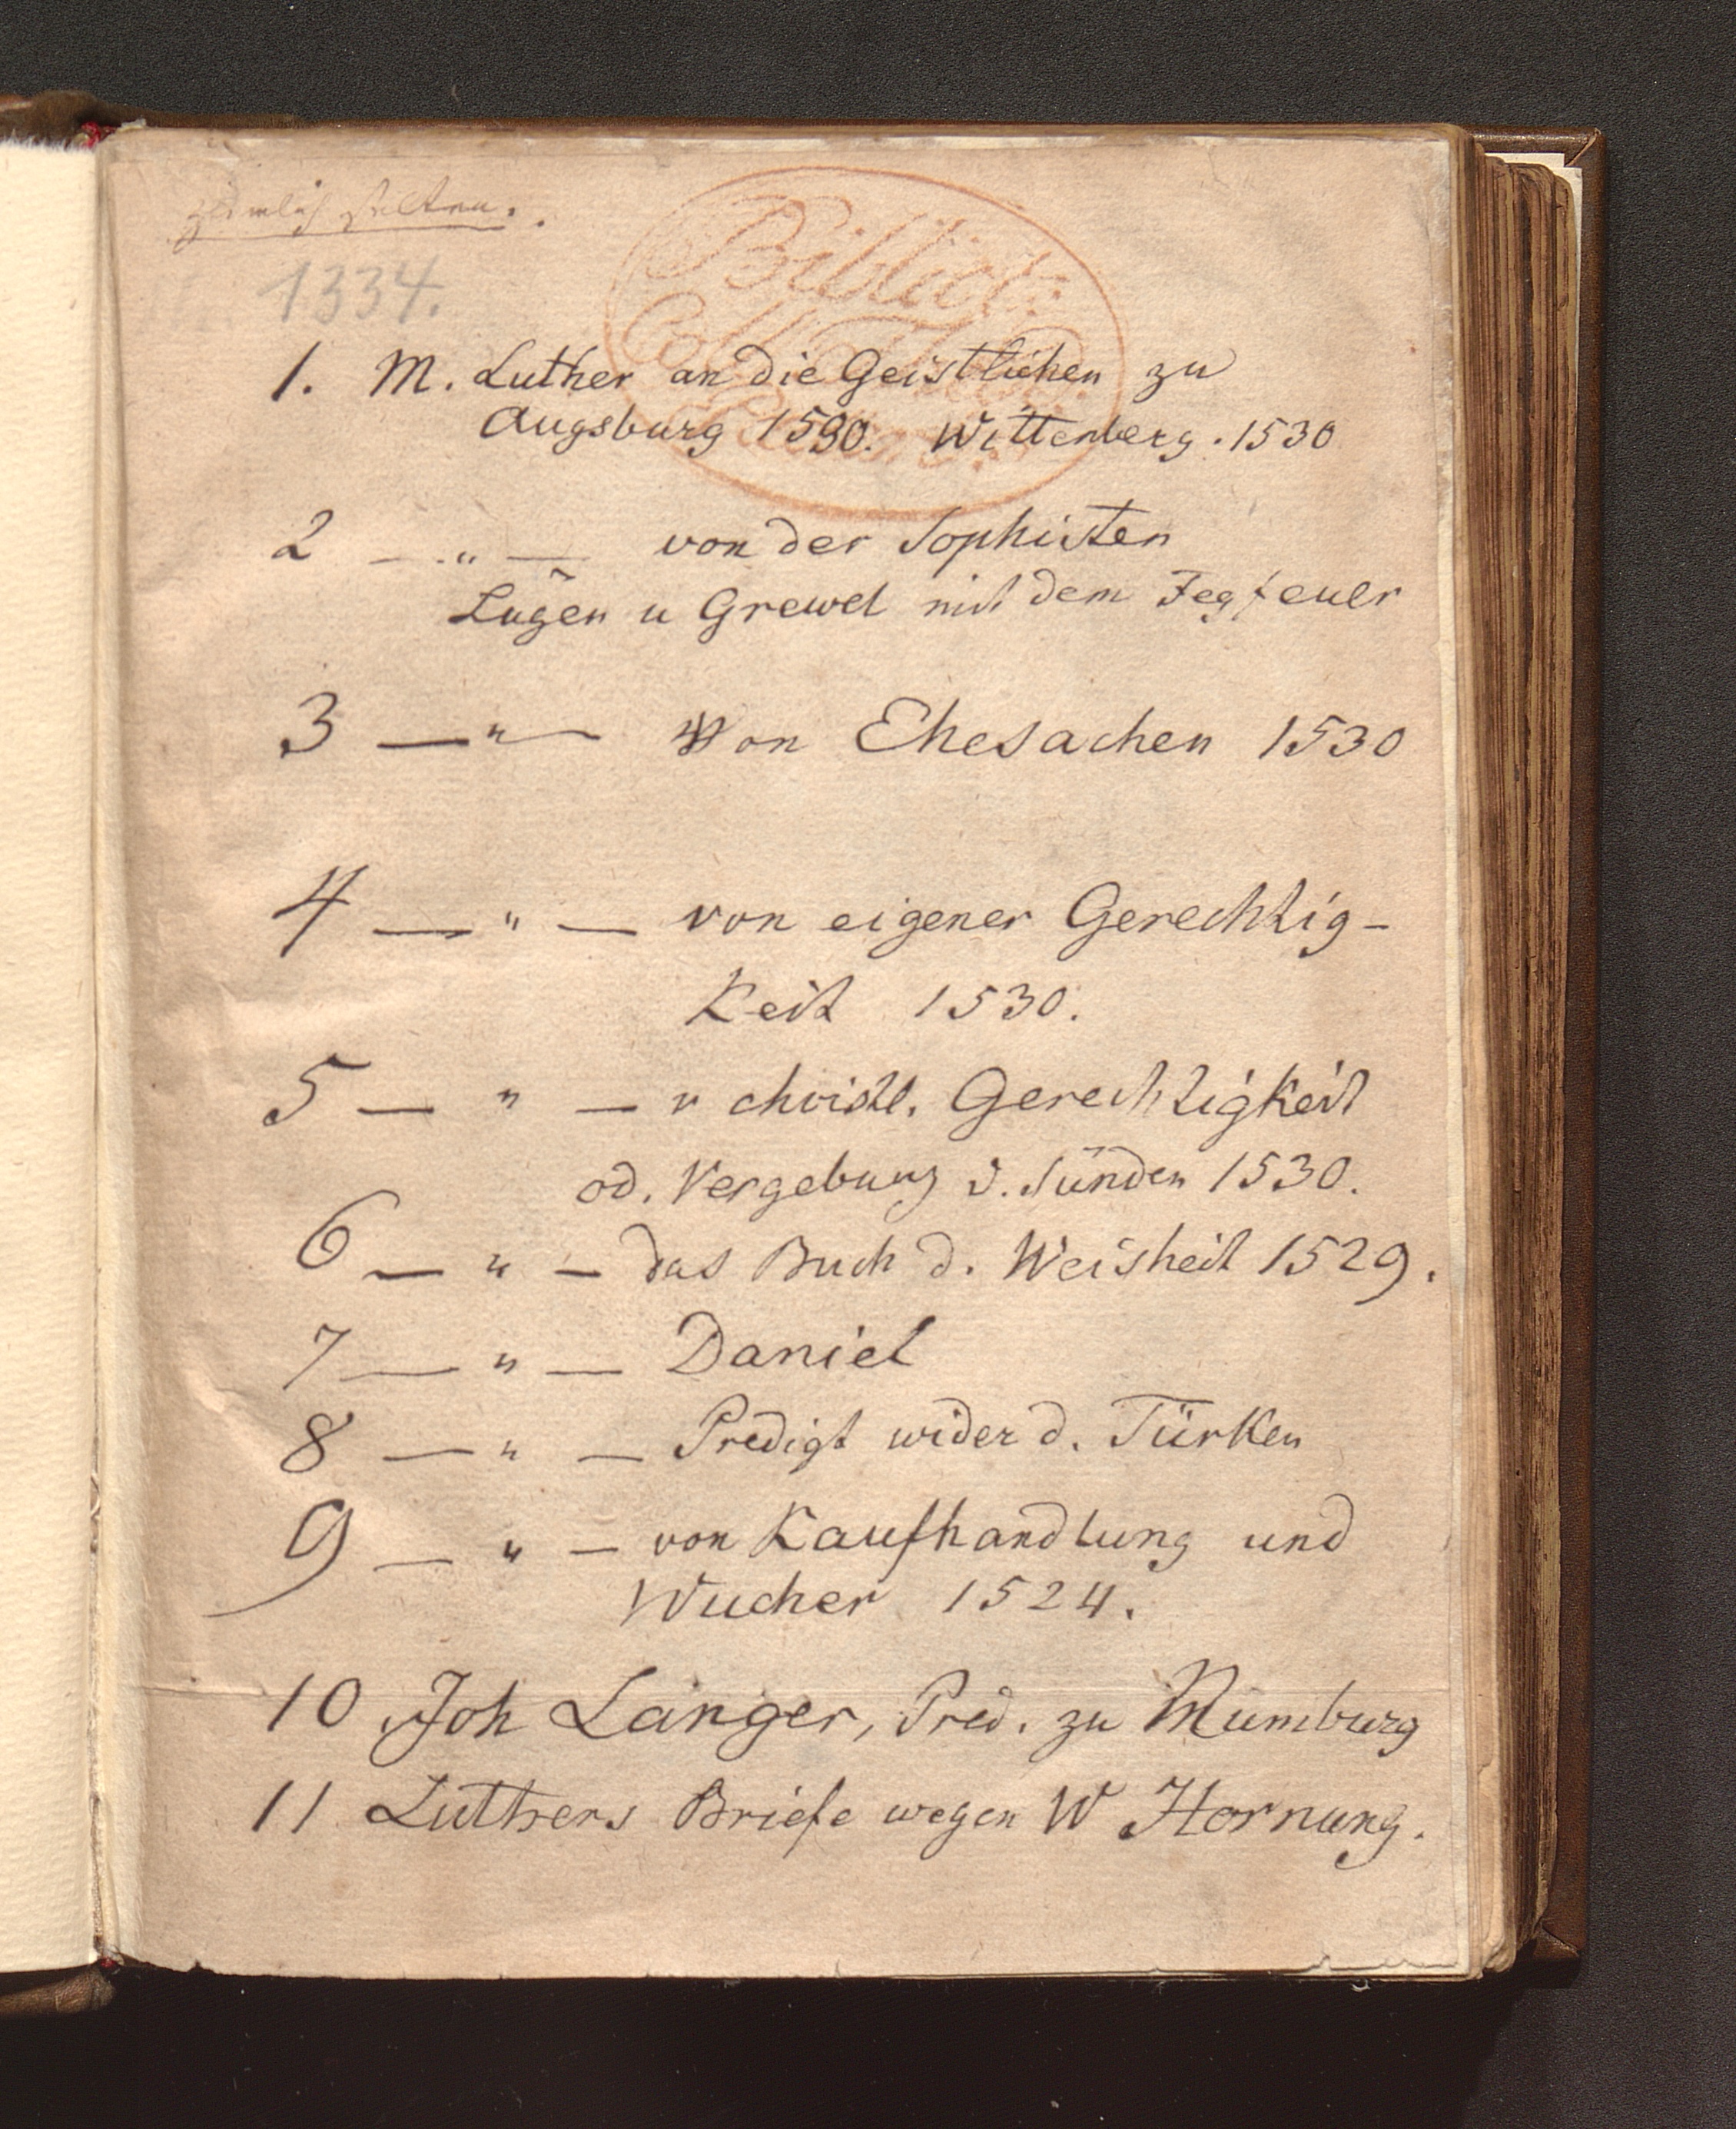 ziemlich selten.
1334.
Biblioth:
1. M. Luther an die Geistlichen zu
Augsburg 1530. Wittenberg. 1530
2 — " — von der Sophisten
Lügen u Grewel mit dem Fegfeuer
3 — " — Von Ehesachen 1530
4 — " — von eigener Gerechtig-
keit 1530.
5 — " — v christl. Gerechtigkeit
od. Vergebung d. Sünden 1530.
6 — " — das Buch d. Weisheit 1529.
7 — " — Daniel
8 — " — Predigt wider d. Türken
9 — " — von Kaufhandlung und
Wucher 1524.
10 Joh Langer, Pred. zu
11 Luthers Briefe wegen W Hornung.